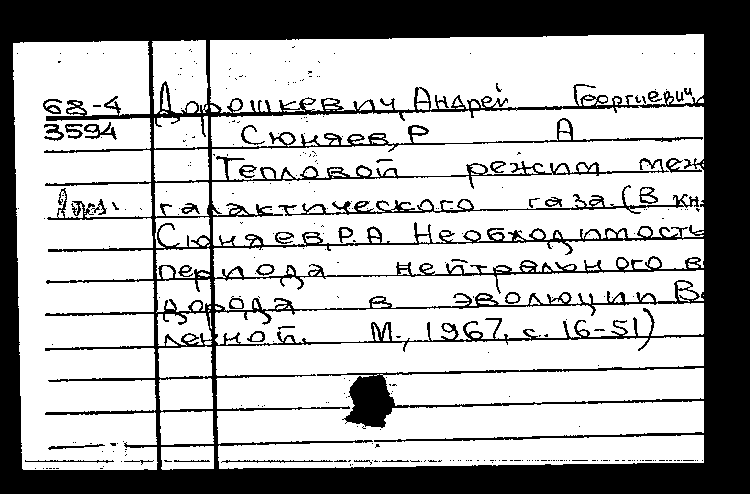 68-4 Дорошкевич, Андрей Георгиевич,
3594 Сюняев, Р А
Тепловой режим меж
галактического газа. (В кн.
Сюняев, Р.А. Необходимость
периода нейтрального во
дорода в эволюции Все
ленной. М., 1967, с. 16-51)